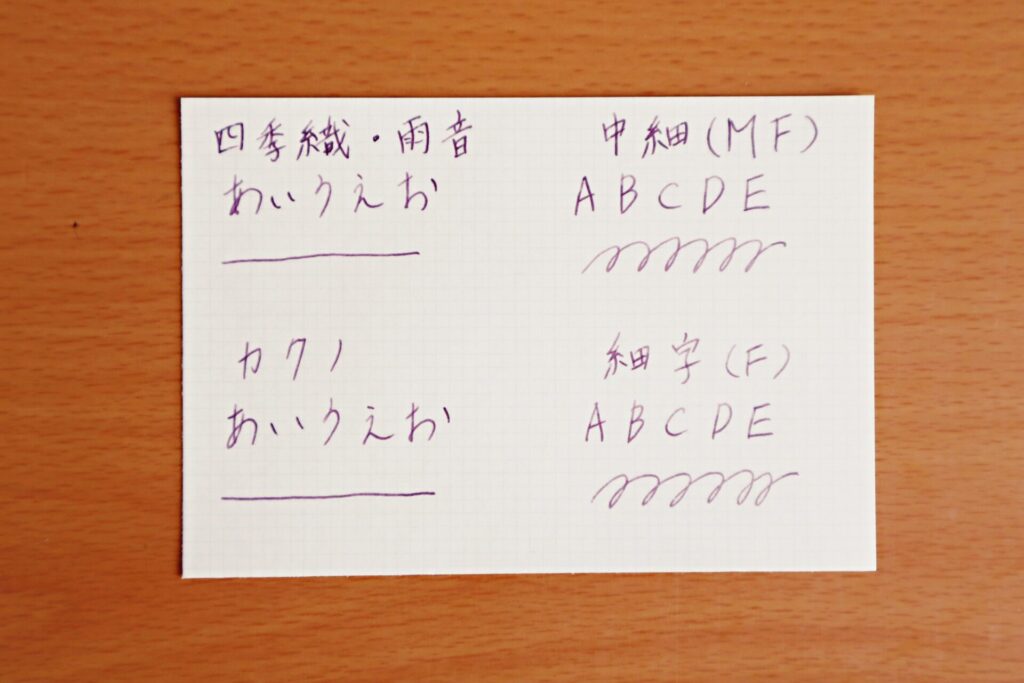 四季織・雨音 中細(MF)
あいうえお ABCDE
カクノ 細字(F)
あいうえお ABCDE